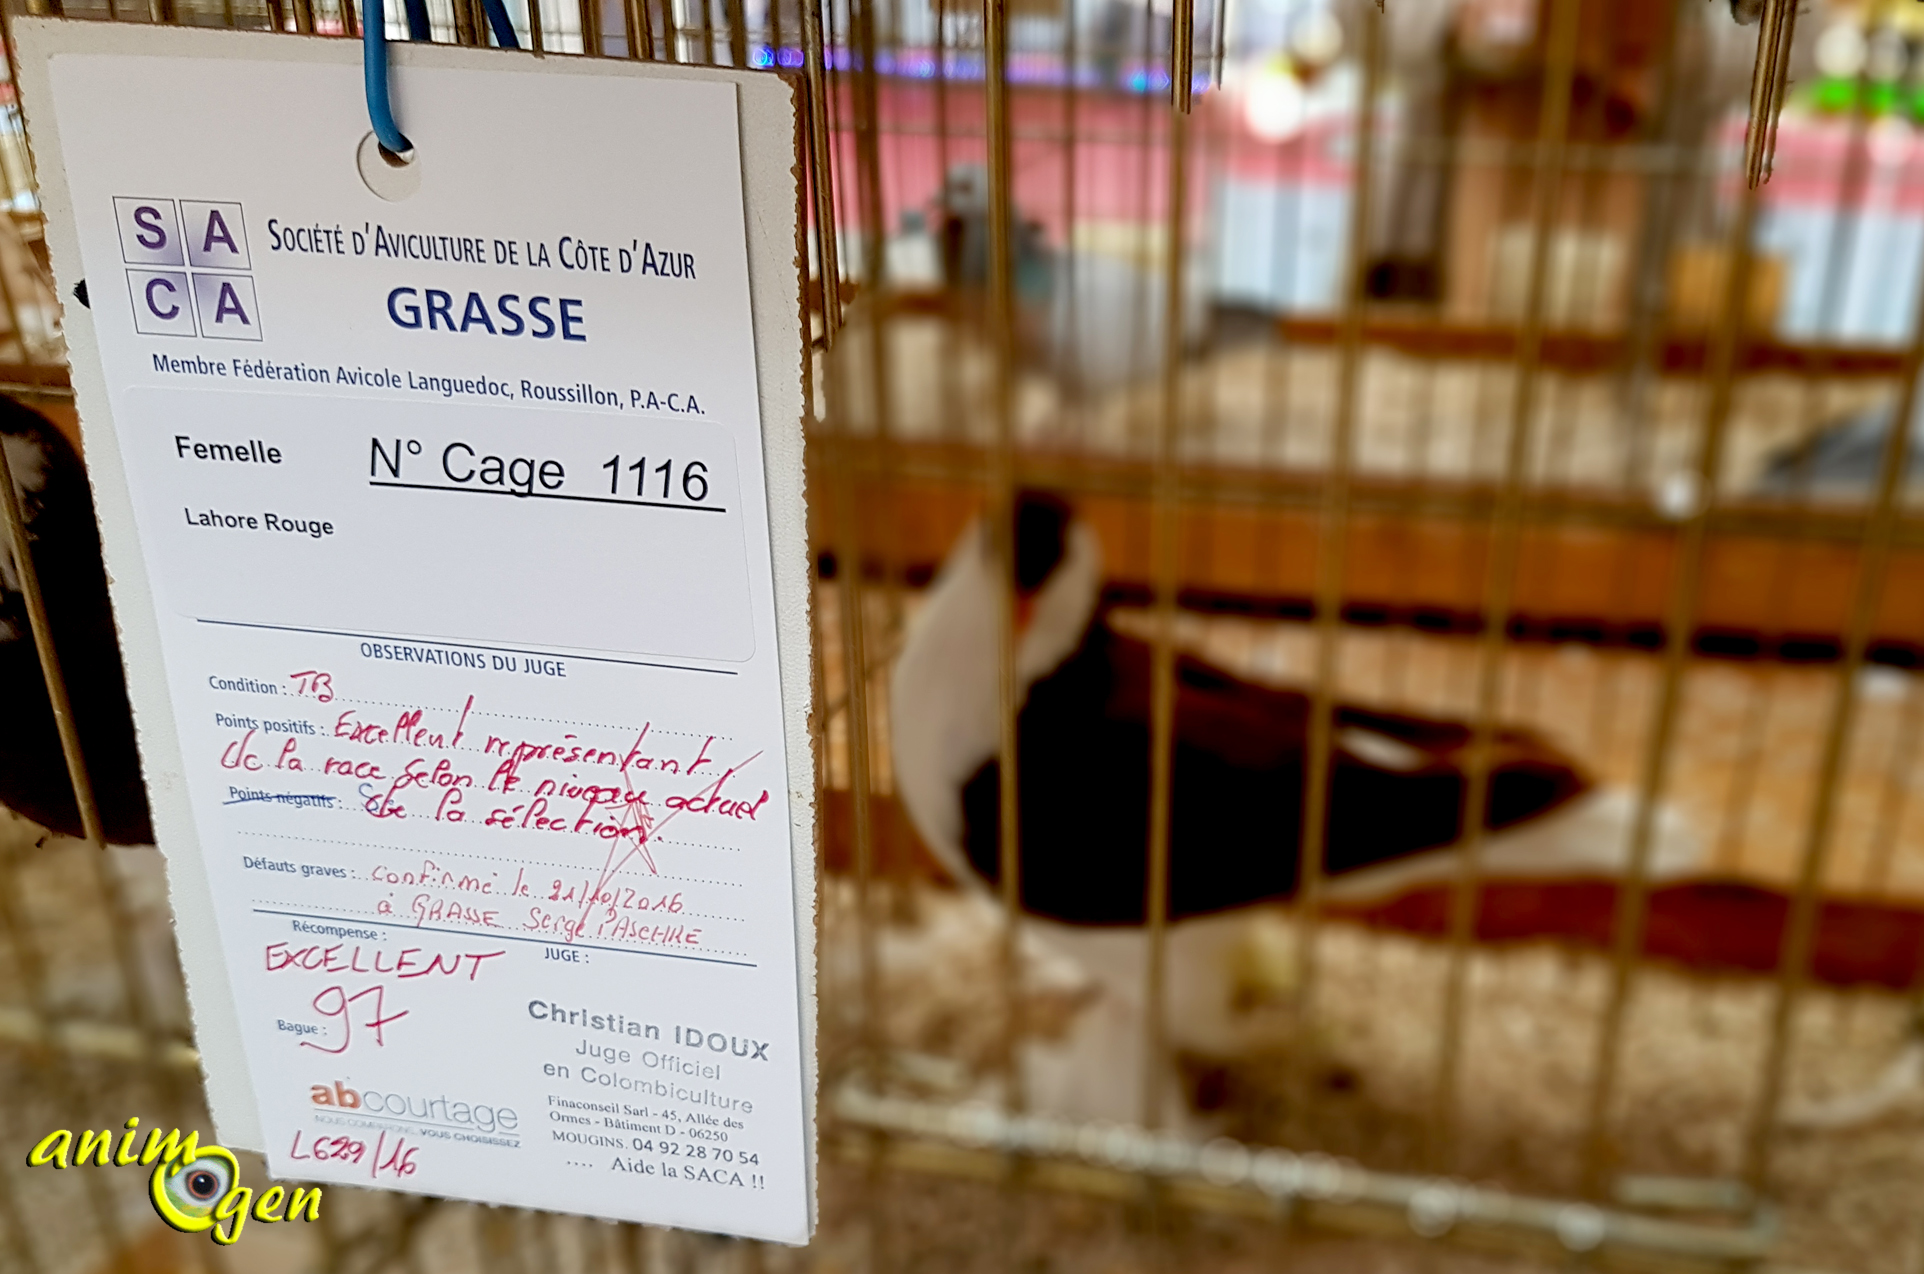 S A
C A
SOCIÉTÉ D'AVICULTURE DE LA CÔTE D'AZUR
GRASSE
Membre Fédération Avicole Languedoc, Roussillon, P.A-C.A.
Femelle
N° Cage 1116
Lahore Rouge
OBSERVATIONS DU JUGE
Condition : TB
Points positifs : Excellent représentant
de la race selon le niveau actuel
Points négatifs : de la sélection.
Défauts graves : confirmé le 21/10/2016
à GRASSE Serge PASCHKE
Récompense :
JUGE :
EXCELLENT
97
Bague :
Christian IDOUX
Juge Officiel
en Colombiculture
Finaconseil Sarl - 45, Allée des
Ormes - Bâtiment D - 06250
MOUGINS. 04 92 28 70 54
.... Aide la SACA !!
abcourtage
NOUS COMPARONS, VOUS CHOISISSEZ
L629/16
animOgen